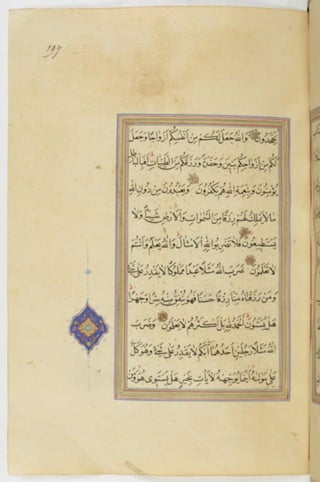 ١٩٧
يَجْحَدُونَ وَاللهُ جَعَلَ لَكُمْ مِنْ اَنْفُسِكُمْ اَزْوَاجًا وَجَعَلَ
لَكُمْ مِنْ اَزْوَاجِكُمْ بَنِينَ وَحَفَدَةً وَرَزَقَكُمْ مِنَ الطَّيِّبَاتِ اَفَبِالْبَاطِلِ
يُؤْمِنُونَ وَبِنِعْمَةِ اللهِ هُمْ يَكْفُرُونَ وَيَعْبُدُونَ مِنْ دُونِ اللهِ
مَا لَا يَمْلِكُ لَهُمْ رِزْقًا مِنَ السَّمٰوَاتِ وَالْاَرْضِ شَيْئًا وَلَا
يَسْتَطِيعُونَ فَلَا تَضْرِبُوا لِلّٰهِ الْاَمْثَالَ اِنَّ اللهَ يَعْلَمُ وَاَنْتُمْ
لَا تَعْلَمُونَ ضَرَبَ اللهُ مَثَلًا عَبْدًا مَمْلُوكًا لَا يَقْدِرُ عَلَى شَيْءٍ
وَمَنْ رَزَقْنَاهُ مِنَّا رِزْقًا حَسَنًا فَهُوَ يُنْفِقُ مِنْهُ سِرًّا وَجَهْرًا
هَلْ يَسْتَوُونَ الْحَمْدُ لِلّٰهِ بَلْ اَكْثَرُهُمْ لَا يَعْلَمُونَ وَضَرَبَ
اللهُ مَثَلًا رَجُلَيْنِ اَحَدُهُمَا اَبْكَمُ لَا يَقْدِرُ عَلَى شَيْءٍ وَهُوَ كَلٌّ
عَلَى مَوْلٰيهُ اَيْنَمَا يُوَجِّهْهُ لَا يَاْتِ بِخَيْرٍ هَلْ يَسْتَوِي هُوَ وَمَنْ